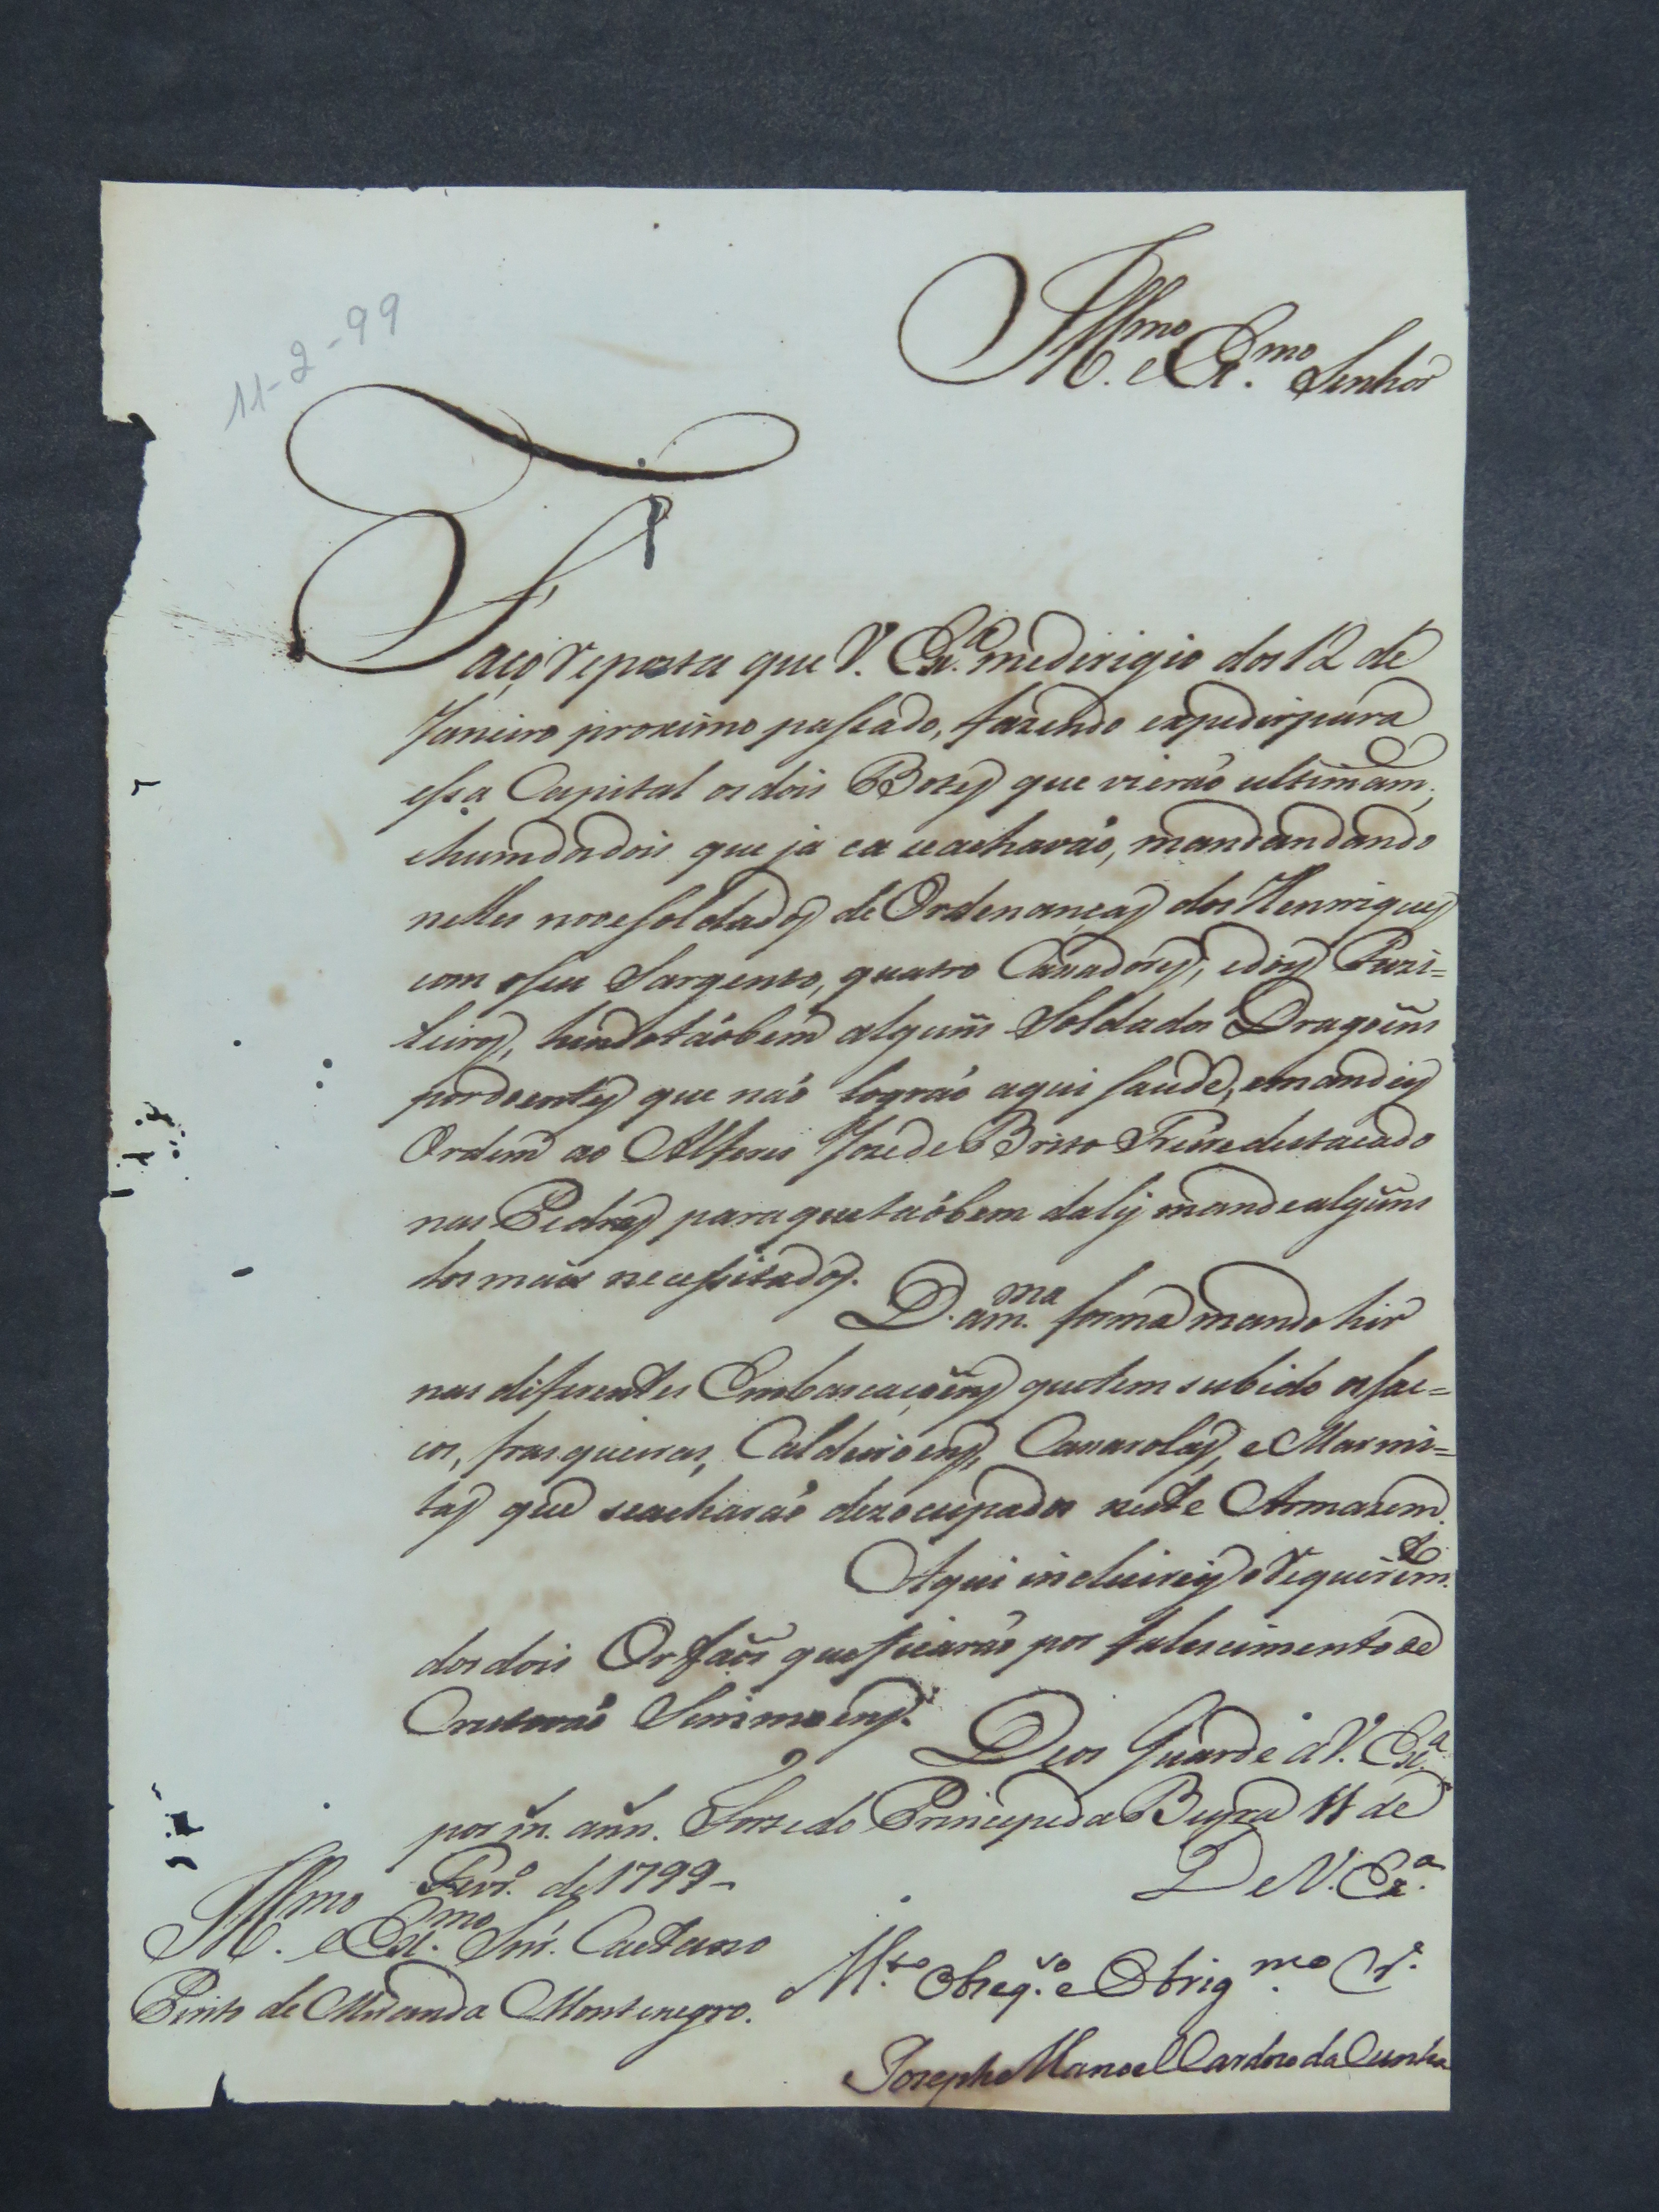 11-2-99
Ill.mo e Ex.mo Senhor
Faço Reposta que V. Ex.a medirigio dos 12 de
Janeiro proximo passado, fazendo expedirpara
essa Capital os dois Botes que vieraõ ultimam.,
ehumdadois que ja ca seacharaõ, mandandando
nelles novesoldados de Ordenanças dos Henriques
com oseu Sargento, quatro Casadores, edois Puzi=
leiros, hindotaõbem alguñs Soldados Dragoẽns
pordoentes que naõ lograõ aqui saude, emandey
Ordem ao Alferes Jozede Brito Freire destacado
nas Pedras paraquetaõbem daly mandealguñs
dos mais necessitados.
D. am.ma forma mando hir
nas diferentes Embarcaçoẽns quetem subido osfac=
cos, frasqueiras, Caldeiroens, Casarolas, e Marmi=
tas que seacharaõ dezocupados neste Armazem.
Aqui incluirey oRequerim.to
dosdois Orfaõs queficaraõ por falescimentode
Simmoens.
Deos Guarde aV. Ex.a
por m. ann. Forte do Principeda Beyra 11 de
Fevr.o de 1799_
De V. Ex.a
Ill.mo e Ex.mo Snr. Caetano
Pinto de Miranda Montenegro.
M.to Obseq.vo e Obrig.mo Cr.o
Josephe Manoel Cardoso da Cunha